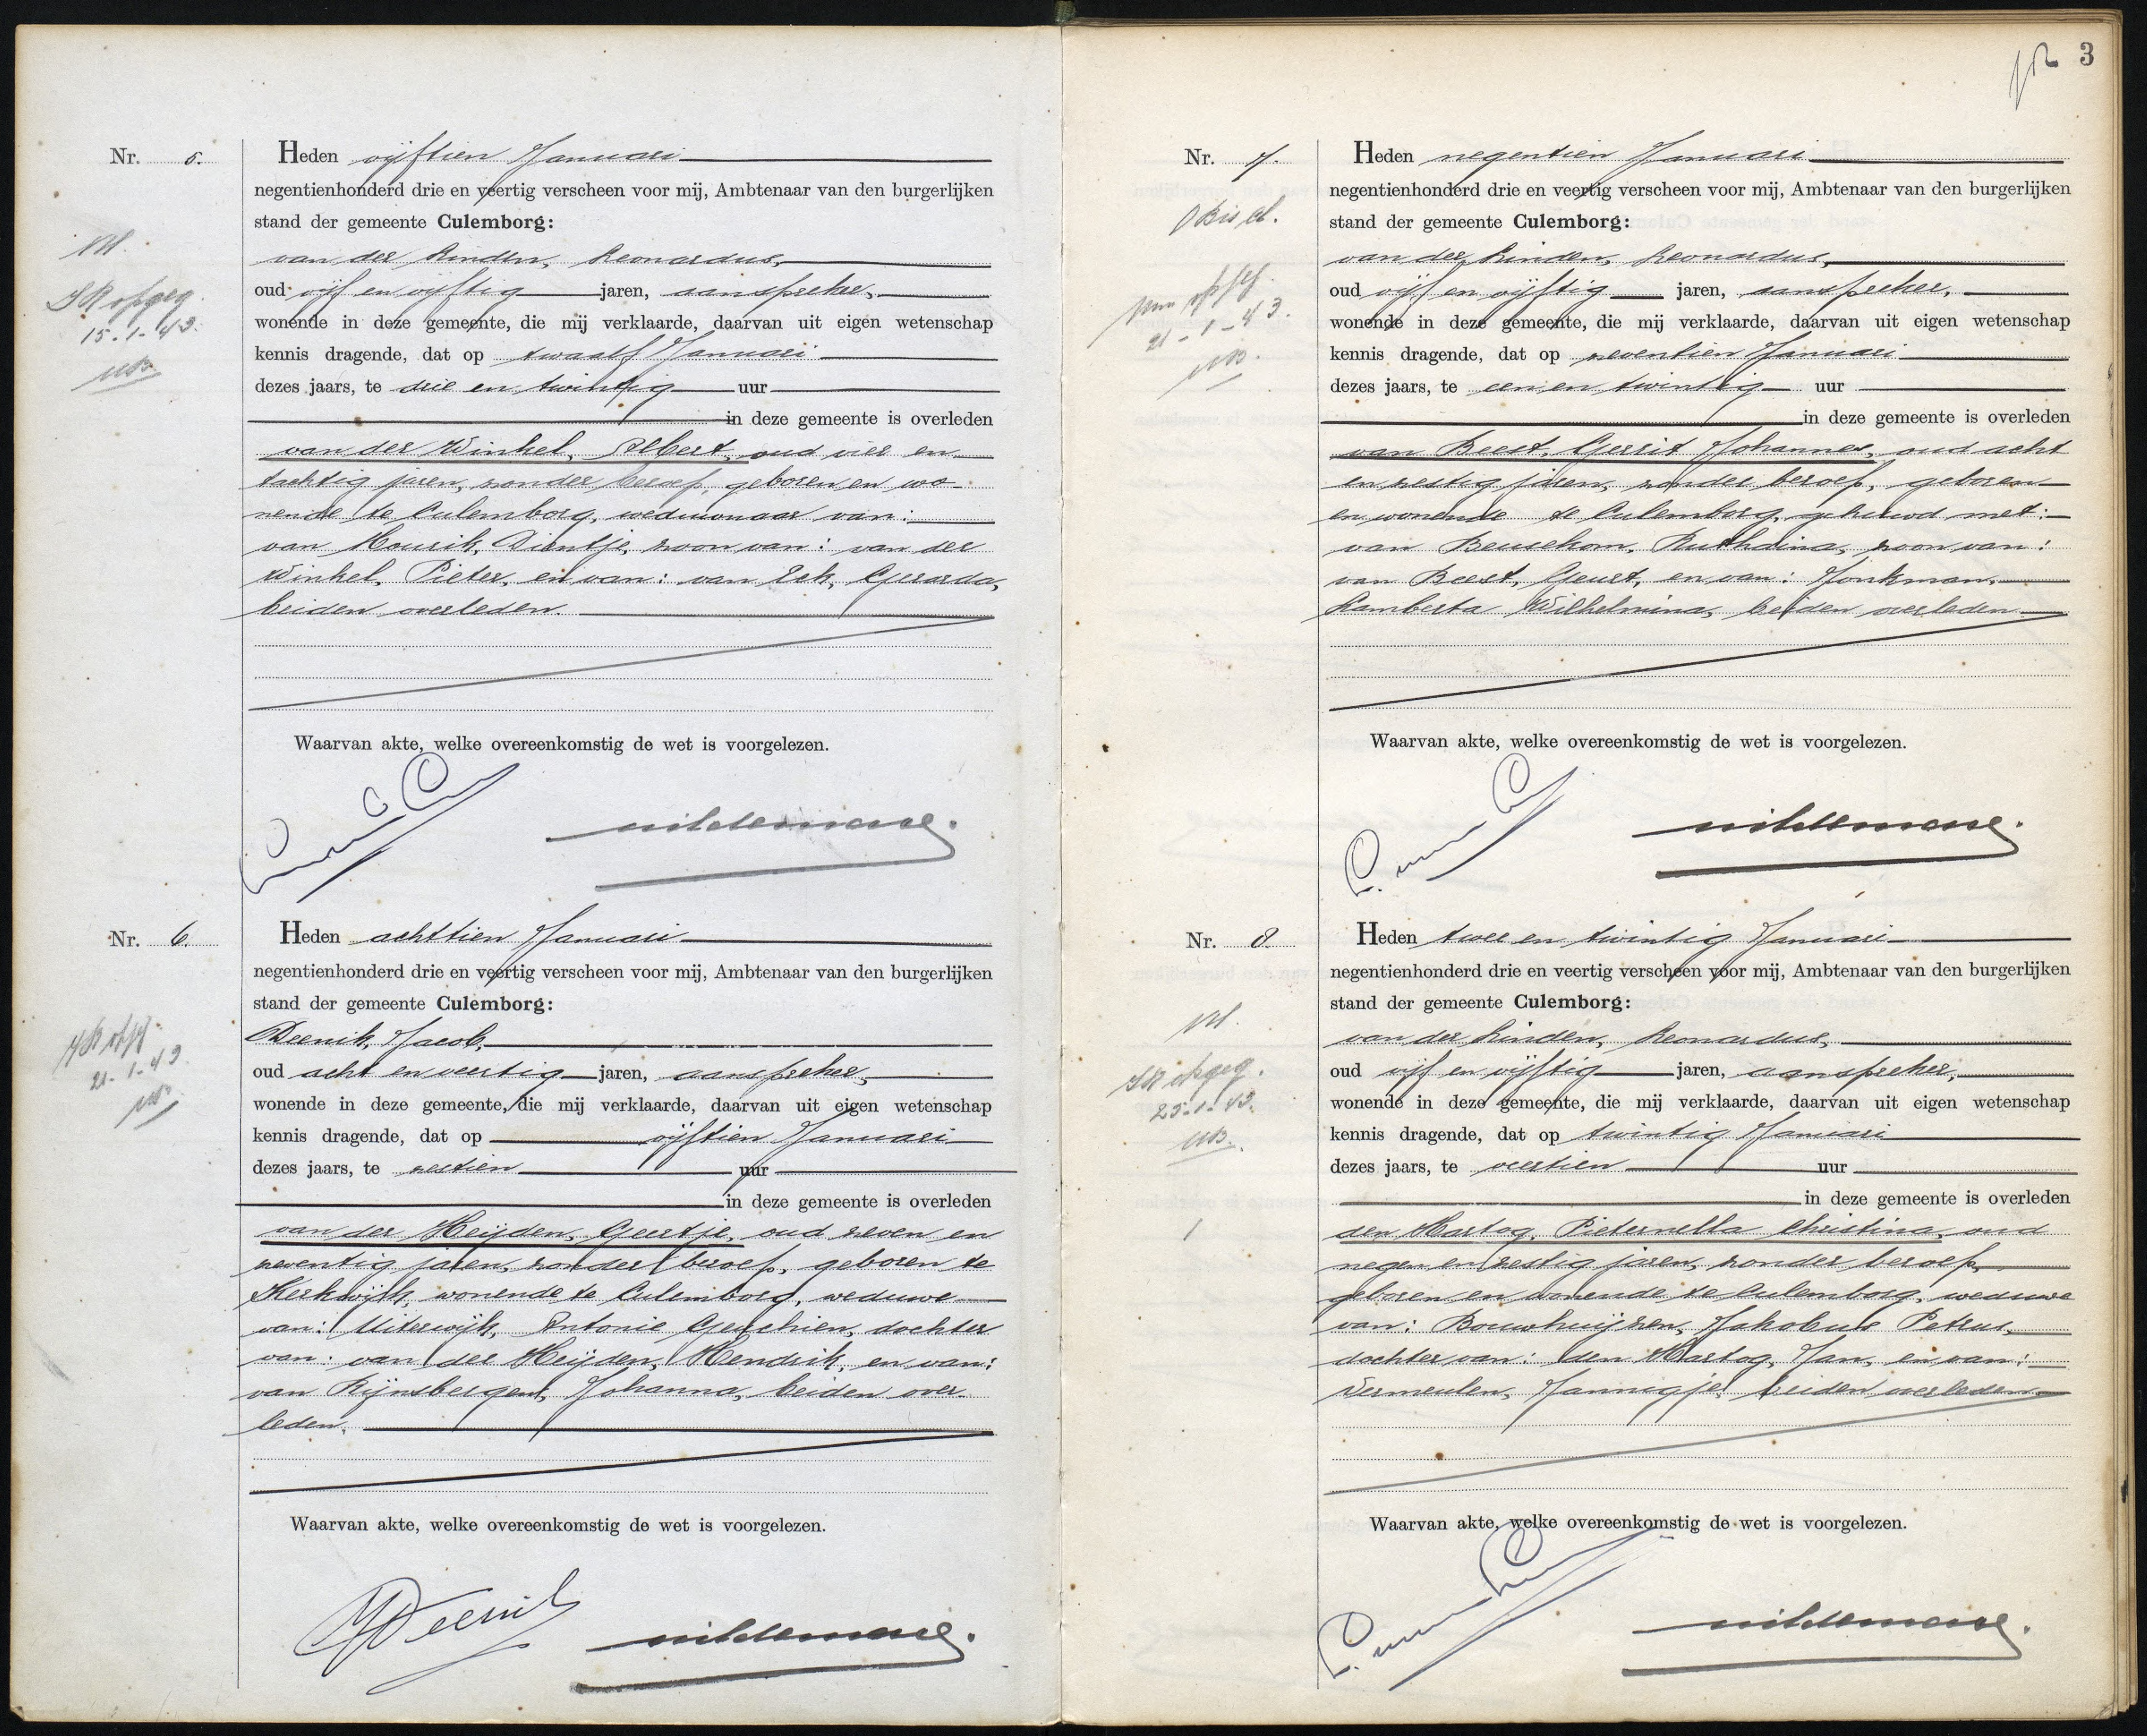 Nr. 5.
Heden vijftien Januari
negentienhonderd drie en veertig verscheen voor mij, Ambtenaar van den burgerlijken
stand der gemeente Culemborg:
van der Linden, Leonardus,
oud vijf en vijftig jaren, aanspreker,
wonende in deze gemeente, die mij verklaarde, daarvan uit eigen wetenschap
kennis dragende, dat op twaalf Januari
dezes jaars, te drie en twintig uur
in deze gemeente is overleden
van der Winkel, Albert, oud vier en
tachtig jaren, zonder beroep, geboren en wo-
nende te Culemborg, weduwnaar van:
van Mourik, Dientje, zoon van: van der
Winkel, Pieter, en van: van Eck, Gerarda,
beiden overleden.
Waarvan akte, welke overeenkomstig de wet is voorgelezen.
15-1-43.
Nr. 6.
Heden achttien Januari
negentienhonderd drie en veertig verscheen voor mij, Ambtenaar van den burgerlijken
stand der gemeente Culemborg:
Deenik, Jacob,
oud acht en veertig jaren, aanspreker,
wonende in deze gemeente, die mij verklaarde, daarvan uit eigen wetenschap
kennis dragende, dat op vijftien Januari
dezes jaars, te zestien uur
in deze gemeente is overleden
van der Heijden, Geertje, oud zeven en
zeventig jaren, zonder beroep, geboren te
Kerkwijk, wonende te Culemborg, weduwe
van: Uiterwijk, Antonie Gerschien, dochter
van: van der Heijden, Hendrik, en van:
van Rijnsbergen, Johanna, beiden over-
leden.
Waarvan akte, welke overeenkomstig de wet is voorgelezen.
21-1-43
JDeenik
3
Nr. 7.
Heden negentien Januari
negentienhonderd drie en veertig verscheen voor mij, Ambtenaar van den burgerlijken
stand der gemeente Culemborg:
van der Linden, Leonardus,
oud vijf en vijftig jaren, aanspreker,
wonende in deze gemeente, die mij verklaarde, daarvan uit eigen wetenschap
kennis dragende, dat op zeventien Januari
dezes jaars, te een en twintig uur
in deze gemeente is overleden
van Beest, Gerrit Johannes, oud acht
en zestig jaren, zonder beroep, geboren
en wonende te Culemborg, gehuwd met:
van Beusekom, Ruthdina, zoon van:
van Beest, Geurt, en van: Jonkman,
Lamberta Wilhelmina, beiden overleden.
Waarvan akte, welke overeenkomstig de wet is voorgelezen.
21-1-43.
Nr. 8.
Heden twee en twintig Januari
negentienhonderd drie en veertig verscheen voor mij, Ambtenaar van den burgerlijken
stand der gemeente Culemborg:
van der Linden, Leonardus,
oud vijf en vijftig jaren, aanspreker,
wonende in deze gemeente, die mij verklaarde, daarvan uit eigen wetenschap
kennis dragende, dat op twintig Januari
dezes jaars, te veertien uur
in deze gemeente is overleden
den Hartog, Pieternella Christina, oud
negen en zestig jaren, zonder beroep,
geboren en wonende te Culemborg, weduwe
van: Bouwhuijzen, Jakobus Petrus,
dochter van: den Hartog, Jan, en van:
Vermeulen, Jannigje, beiden overleden.
Waarvan akte, welke overeenkomstig de wet is voorgelezen.
25-1-43.